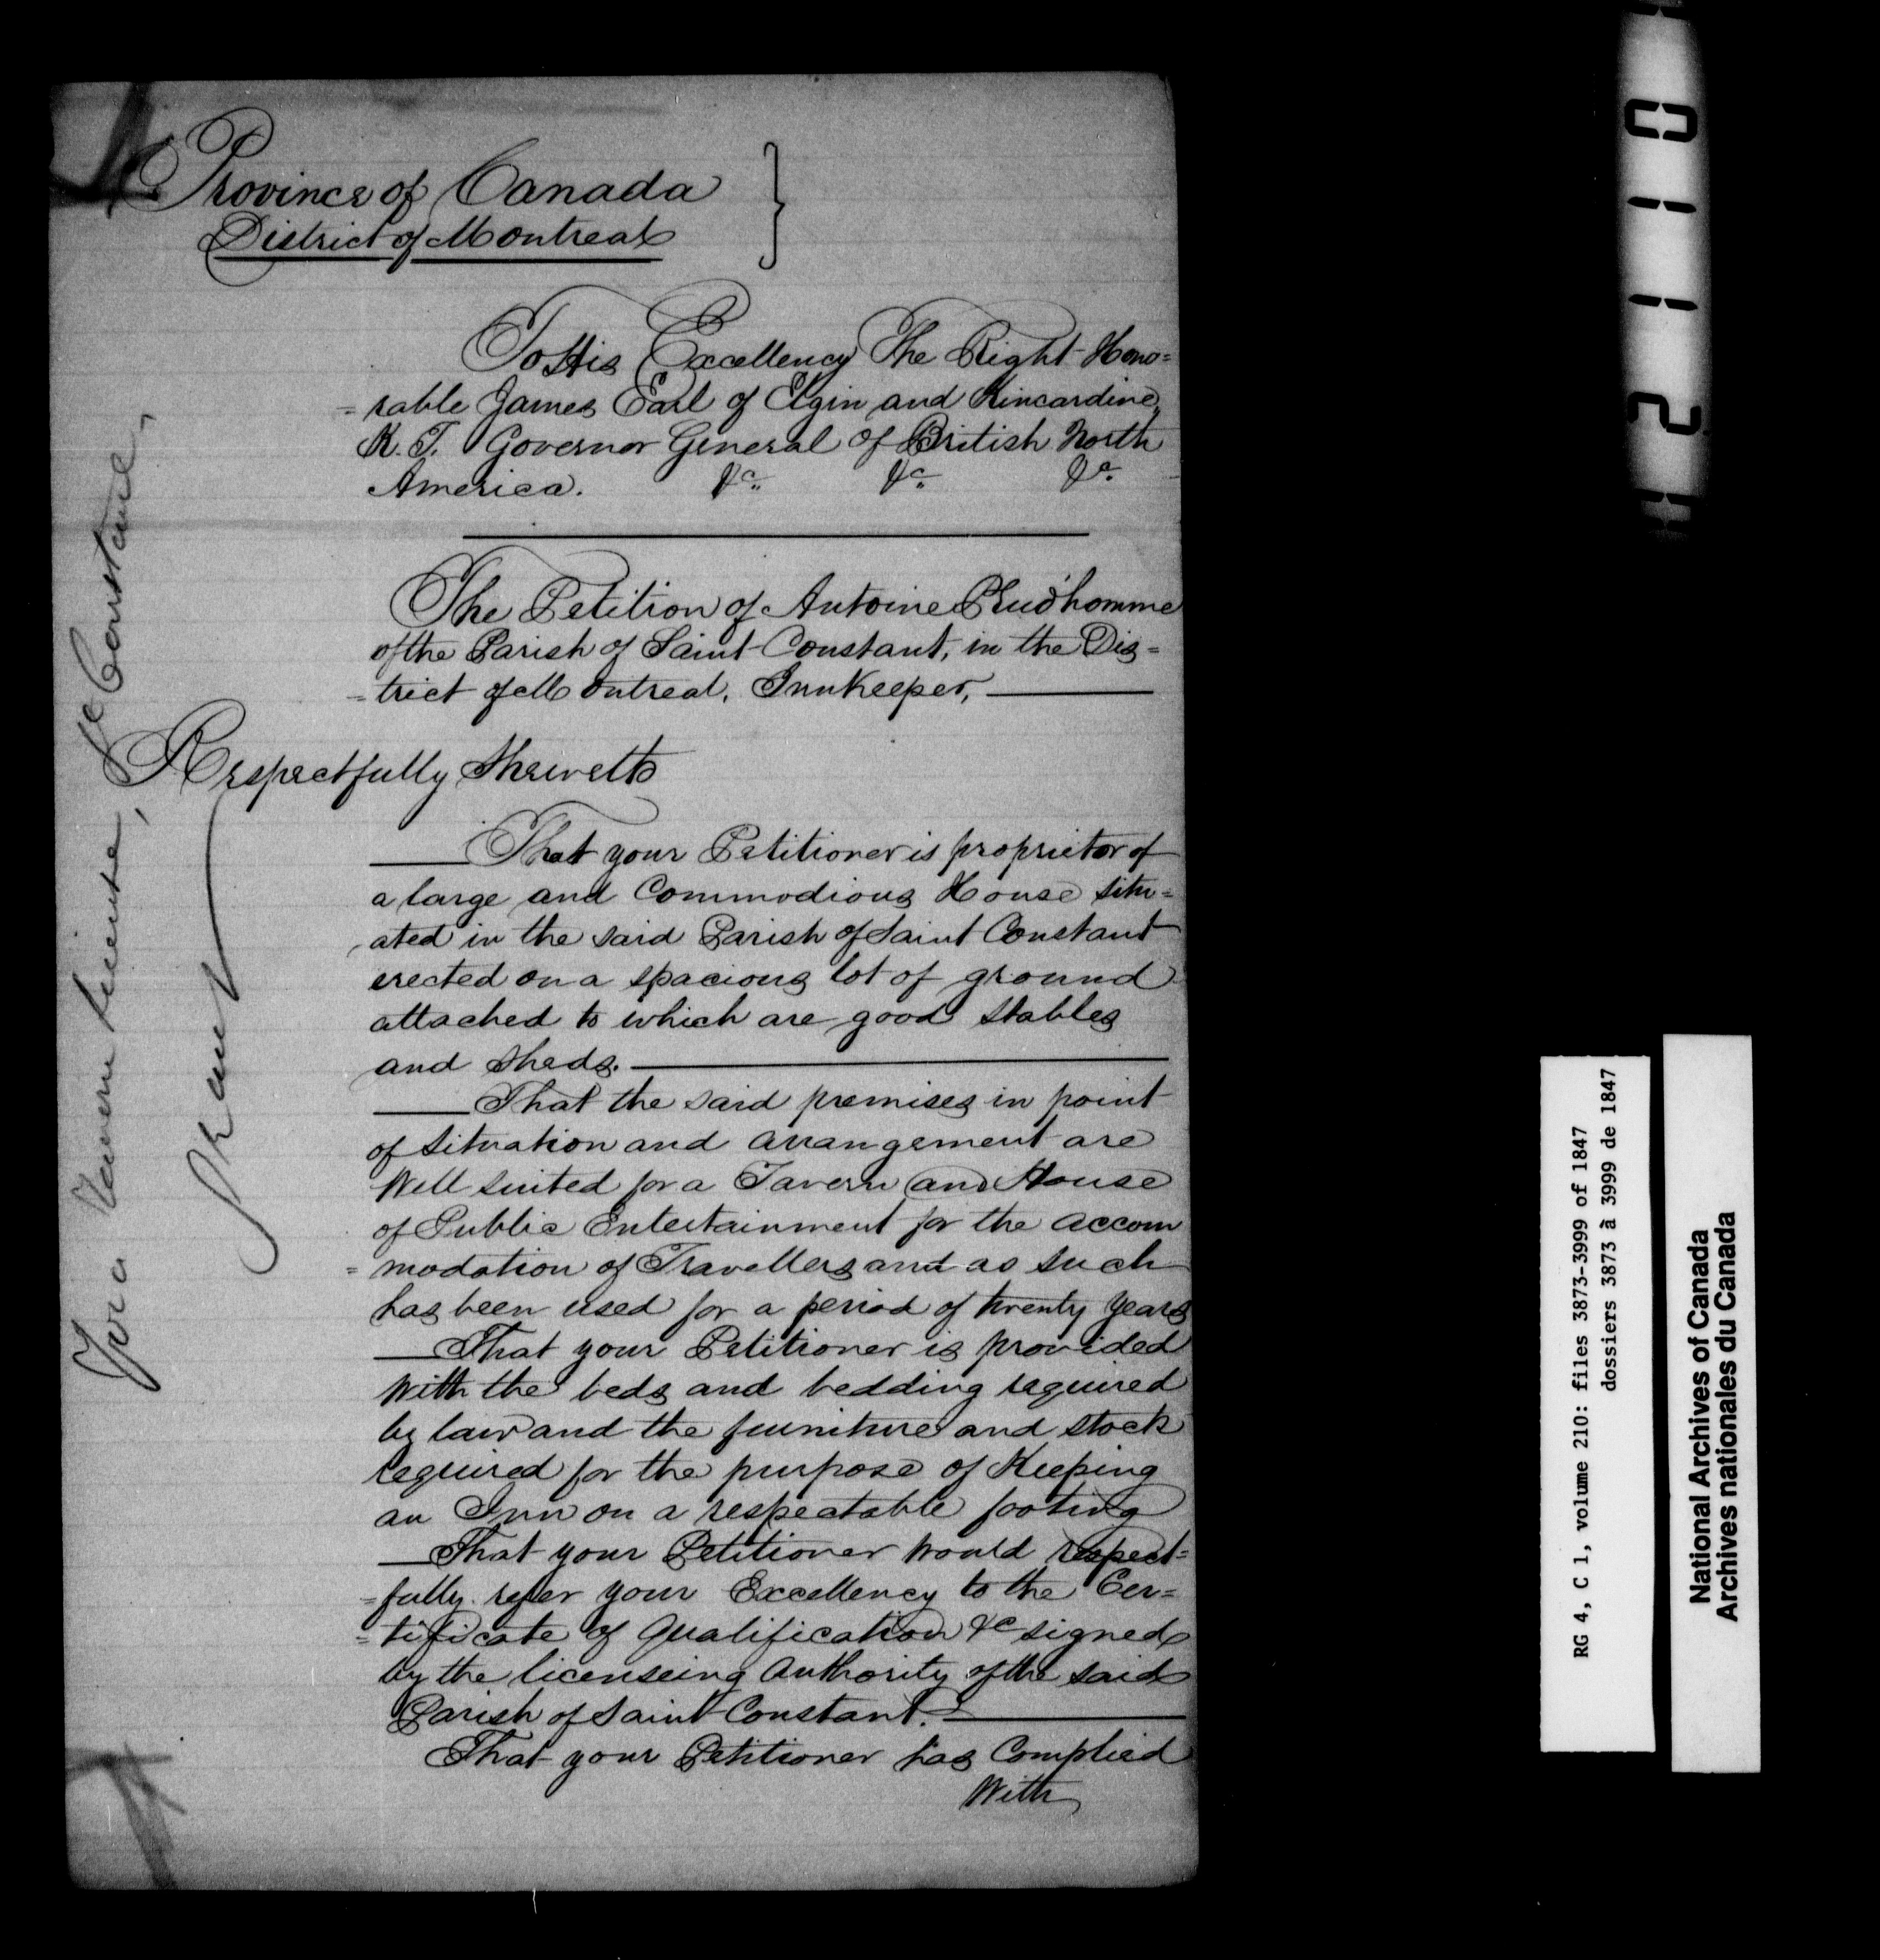 Province of Canada }
District of Montreal
To His Excellency The Right Hono=
=rable James Earl of Elgin and Kincardine,
K. T. Governor General of British North
America. &c. &c. &c.
The Petition of Antoine Prud'homme
of the Parish of Saint Constant, in the Dis=
=trict of Montreal, Innkeeper,
Respectfully Sheweth
That your Petitioner is proprietor of
a large and Commodious House situ=
ated in the said Parish of Saint Constant
erected on a spacious lot of ground
attached to which are good stables
and sheds.
That the said premises in point
of situation and arrangement are
Well suited for a Tavern and House
of Public Entertainment for the accom
=modation of Travellers and as such
has been used for a period of twenty years
That your Petitioner is provided
With the beds and bedding required
by law and the furniture and stock
required for the purpose of Keeping
an Inn on a respectable footing
That your Petitioner Would respect=
=fully refer your Excellency to the Cer=
=tificate of Qualification &c signed
by the licenseing Authority of the said
Parish of Saint Constant.
That your Petitioner has Complied
With
For a Tavern License, St Constant,
Grant
2110
RG 4, C 1, volume 210: files 3873-3999 of 1847
dossiers 3873 à 3999 de 1847
National Archives of Canada
Archives nationales du Canada